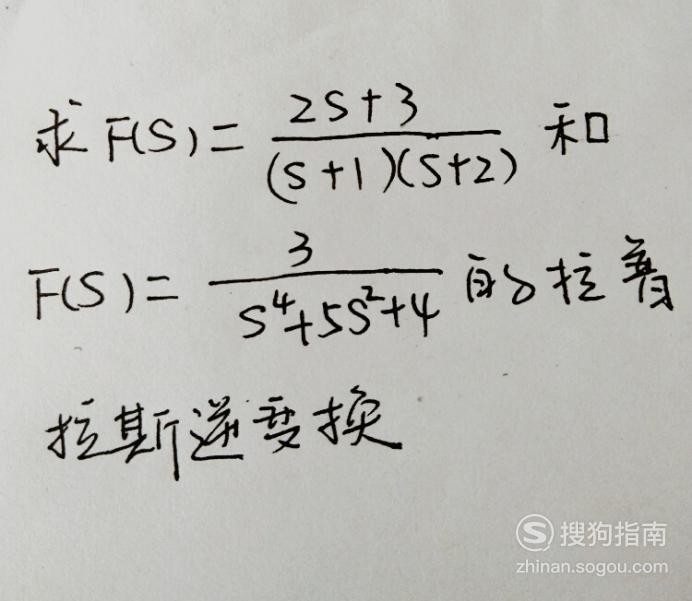 求 F(S) = \frac{2S+3}{(S+1)(S+2)} 和
F(S) = \frac{3}{S^4+5S^2+4} 的拉普
拉斯逆变换
S 搜狗指南
zhinan.sogou.com